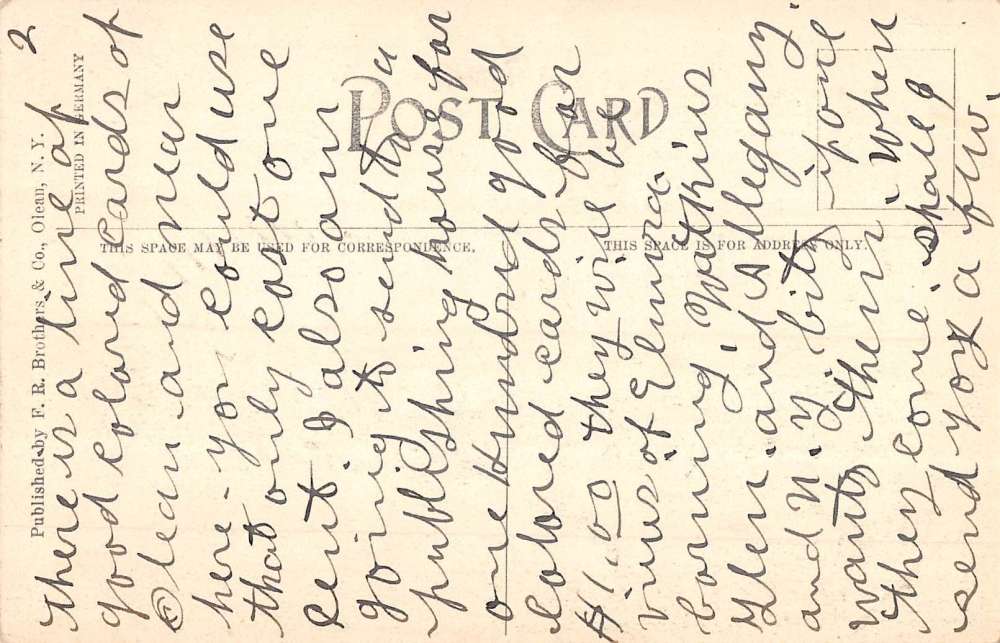 2
there is a line of
good colored cards of
Olean and near
here - you could use
that only cost one
cent I also am
going to send to a
publishing house for
one hundred good
colored cards for
$1.00 they will be
views of Elmira.
Watkins
Glen. and Allegany.
and N. Y. City if one
wants them. When
they come. shall
send you a few.
Published by F. R. Brothers & Co., Olean, N. Y.
PRINTED IN GERMANY
POST CARD
THIS SPACE MAY BE USED FOR CORRESPONDENCE.
THIS SPACE IS FOR ADDRESS ONLY.